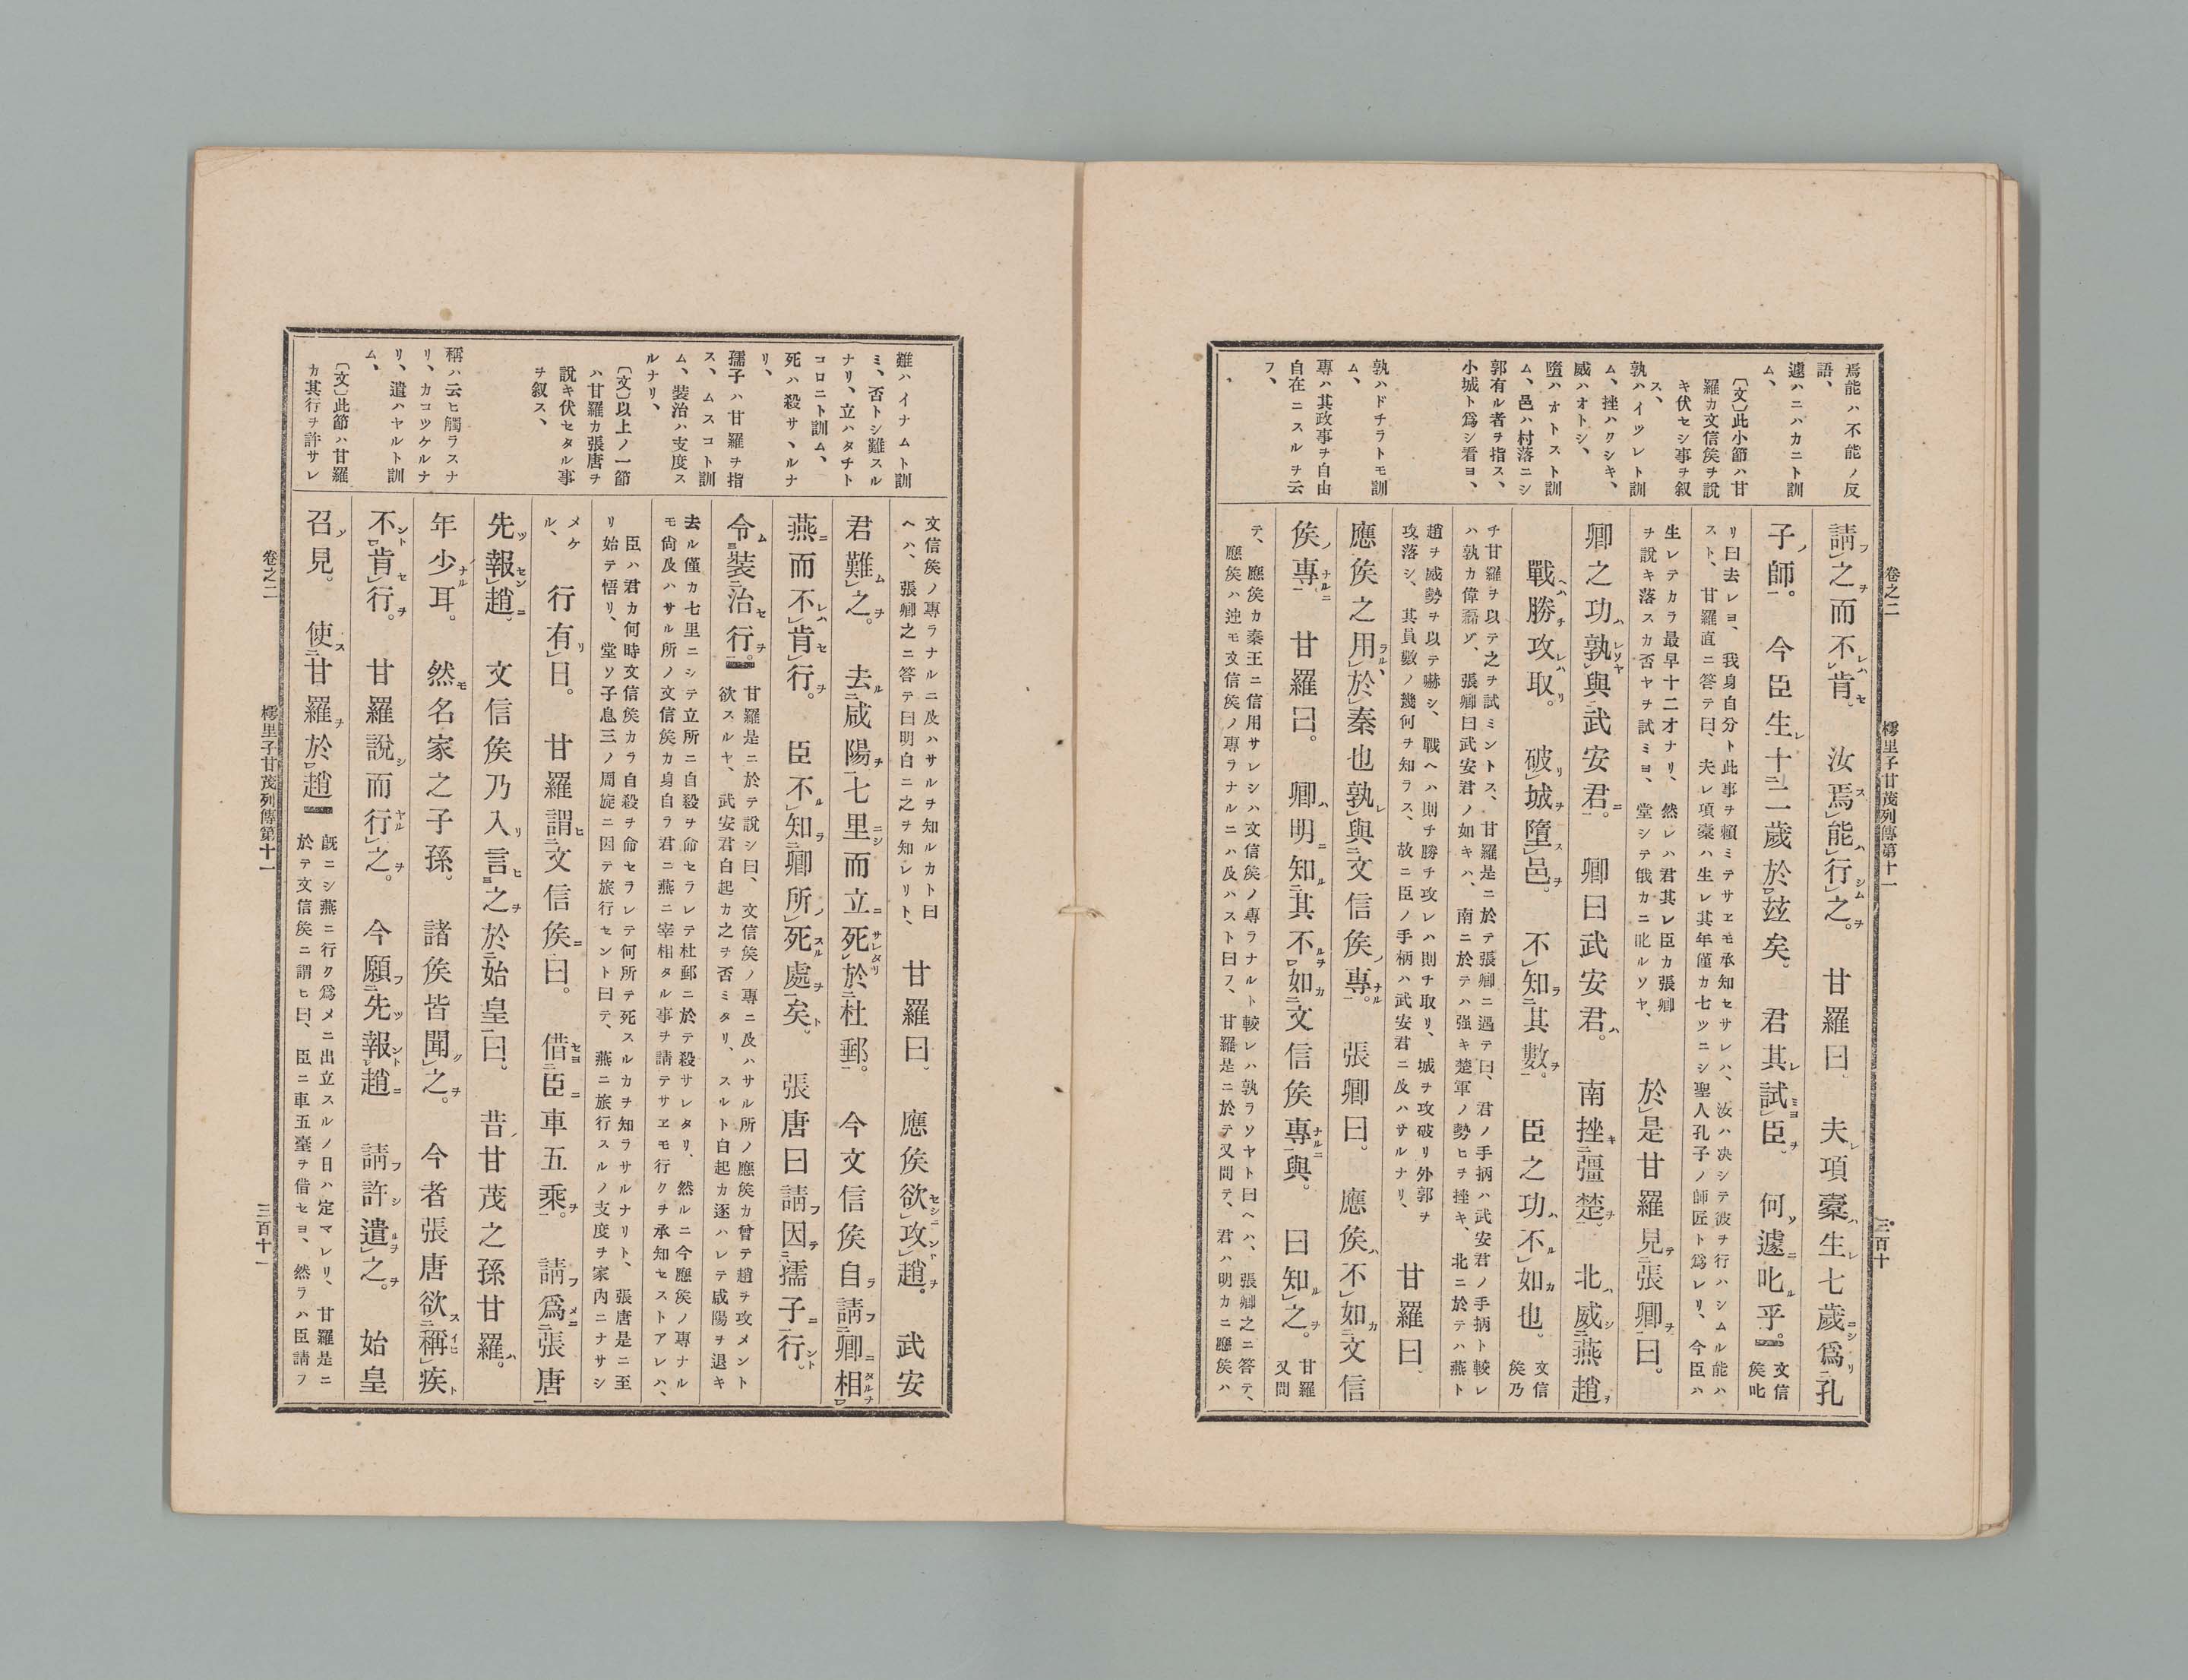 卷之二
樗里子甘茂列傳第十一
三百十
焉能ハ不能ノ反
語、
遽ハニハカニト訓
ム、
〔文〕此小節ハ甘
羅カ文信矦ヲ說
キ伏セシ事ヲ叙
ス、
孰ハイツレト訓
ム、挫ハクシキ、
威ハオトシ、
墮ハオトスト訓
ム、邑ハ村落ニシ
郭有ル者ヲ指ス、
小城ト爲シ看ヨ、
孰ハドチラトモ訓
ム、
專ハ其政事ヲ自由
自在ニスルヲ云
フ、
請之而不肯。汝焉能行之。甘羅曰。夫項橐生七歲爲孔
子師。今臣生十二歲於玆矣。君其試臣。何遽叱乎。文信
矦叱
リ曰去レヨ、我身自分ト此事ヲ賴ミテサヱモ承知セサレハ、汝ハ决シテ彼ヲ行ハシムル能ハ
スト、甘羅直ニ答テ曰、夫レ項橐ハ生レ其年僅カ七ツニシ聖人孔子ノ師匠ト爲レリ、今臣ハ
生レテカラ最早十二才ナリ、然レハ君其レ臣カ張卿
ヲ說キ落スカ否ヤヲ試ミヨ、堂シテ俄カニ叱ルソヤ、
於是甘羅見張卿曰。
卿之功孰與武安君。卿曰武安君。南挫彊楚。北威燕趙
戰勝攻取。破城墮邑。不知其數。臣之功不如也。文信
矦乃
チ甘羅ヲ以テ之ヲ試ミントス、甘羅是ニ於テ張卿ニ遇テ曰、君ノ手柄ハ武安君ノ手柄ト較レ
ハ孰カ偉蕌ゾ、張卿曰武安君ノ如キハ、南ニ於テハ强キ楚軍ノ勢ヒヲ挫キ、北ニ於テハ燕ト
趙ヲ威勢ヲ以テ嚇シ、戰ヘハ則チ勝チ攻レハ則チ取リ、城ヲ攻破リ外郭ヲ
攻落シ、其員數ノ幾何ヲ知ラス、故ニ臣ノ手柄ハ武安君ニ及ハサルナリ、
甘羅曰
應矦之用於秦也孰與文信矦專。張卿曰。應矦不如文信
矦專。甘羅曰。卿明知其不如文信矦專與。曰知之。甘羅
又問
テ、應矦カ秦王ニ信用サレシハ文信矦ノ專ラナルト較レハ孰ラソヤト曰ヘハ、張卿之ニ答テ、
應矦ハ迚モ文信矦ノ專ラナルニハ及ハスト曰フ、甘羅是ニ於テ又問テ、君ハ明カニ應矦ハ
難ハイナムト訓
ミ、否トシ難スル
ナリ、立ハタチト
コロニト訓ム、
死ハ殺サヽルナ
リ、
孺子ハ甘羅ヲ指
ス、ムスコト訓
ム、裝治ハ支度ス
ルナリ、
〔文〕以上ノ一節
ハ甘羅カ張唐ヲ
說キ伏セタル事
ヲ叙ス、
稱ハ云ヒ觸ラスナ
リ、カコツケルナ
リ、遣ハヤルト訓
ム、
〔文〕此節ハ甘羅
カ其行ヲ許サレ
文信矦ノ專ラナルニ及ハサルヲ知ルカト曰
ヘハ、張卿之ニ答テ曰明白ニ之ヲ知レリト、
甘羅曰。應矦欲攻趙。武安
君難之。去咸陽七里而立死於杜郵。今文信矦自請卿相
燕而不肯行。臣不知卿所死處矣。張唐曰請因孺子行。
令裝治行。甘羅是ニ於テ說シ曰、文信矦ノ專ニ及ハサル所ノ應矦カ曾テ趙ヲ攻メント
欲スルヤ、武安君白起カ之ヲ否ミタリ、スルト白起カ逐ハレテ咸陽ヲ退キ
去ル僅カ七里ニシテ立所ニ自殺ヲ命セラレテ杜郵ニ於テ殺サレタリ、然ルニ今應矦ノ專ナル
モ尙及ハサル所ノ文信矦カ身自ラ君ニ燕ニ宰相タル事ヲ請テサヱモ行クヲ承知セストアレハ、
臣ハ君カ何時文信矦カラ自殺ヲ命セラレテ何所テ死スルカヲ知ラサルナリト、張唐是ニ至
リ始テ悟リ、堂ソ子息三ノ周旋ニ因テ旅行セント曰テ、燕ニ旅行スルノ支度ヲ家內ニナサシ
メケ
ル、
行有日。甘羅謂文信矦曰。借臣車五乘。請爲張唐
先報趙。文信矦乃入言之於始皇曰。昔甘茂之孫甘羅。
年少耳。然名家之子孫。諸矦皆聞之。今者張唐欲稱疾
不肯行。甘羅說而行之。今願先報趙請許遣之。始皇
召見。使甘羅於趙 既ニシ燕ニ行ク爲メニ出立スルノ日ハ定マレリ、甘羅是ニ
於テ文信矦ニ謂ヒ曰、臣ニ車五臺ヲ借セヨ、然ラハ臣請フ
卷之二
樗里子甘茂列傳第十一
三百十一